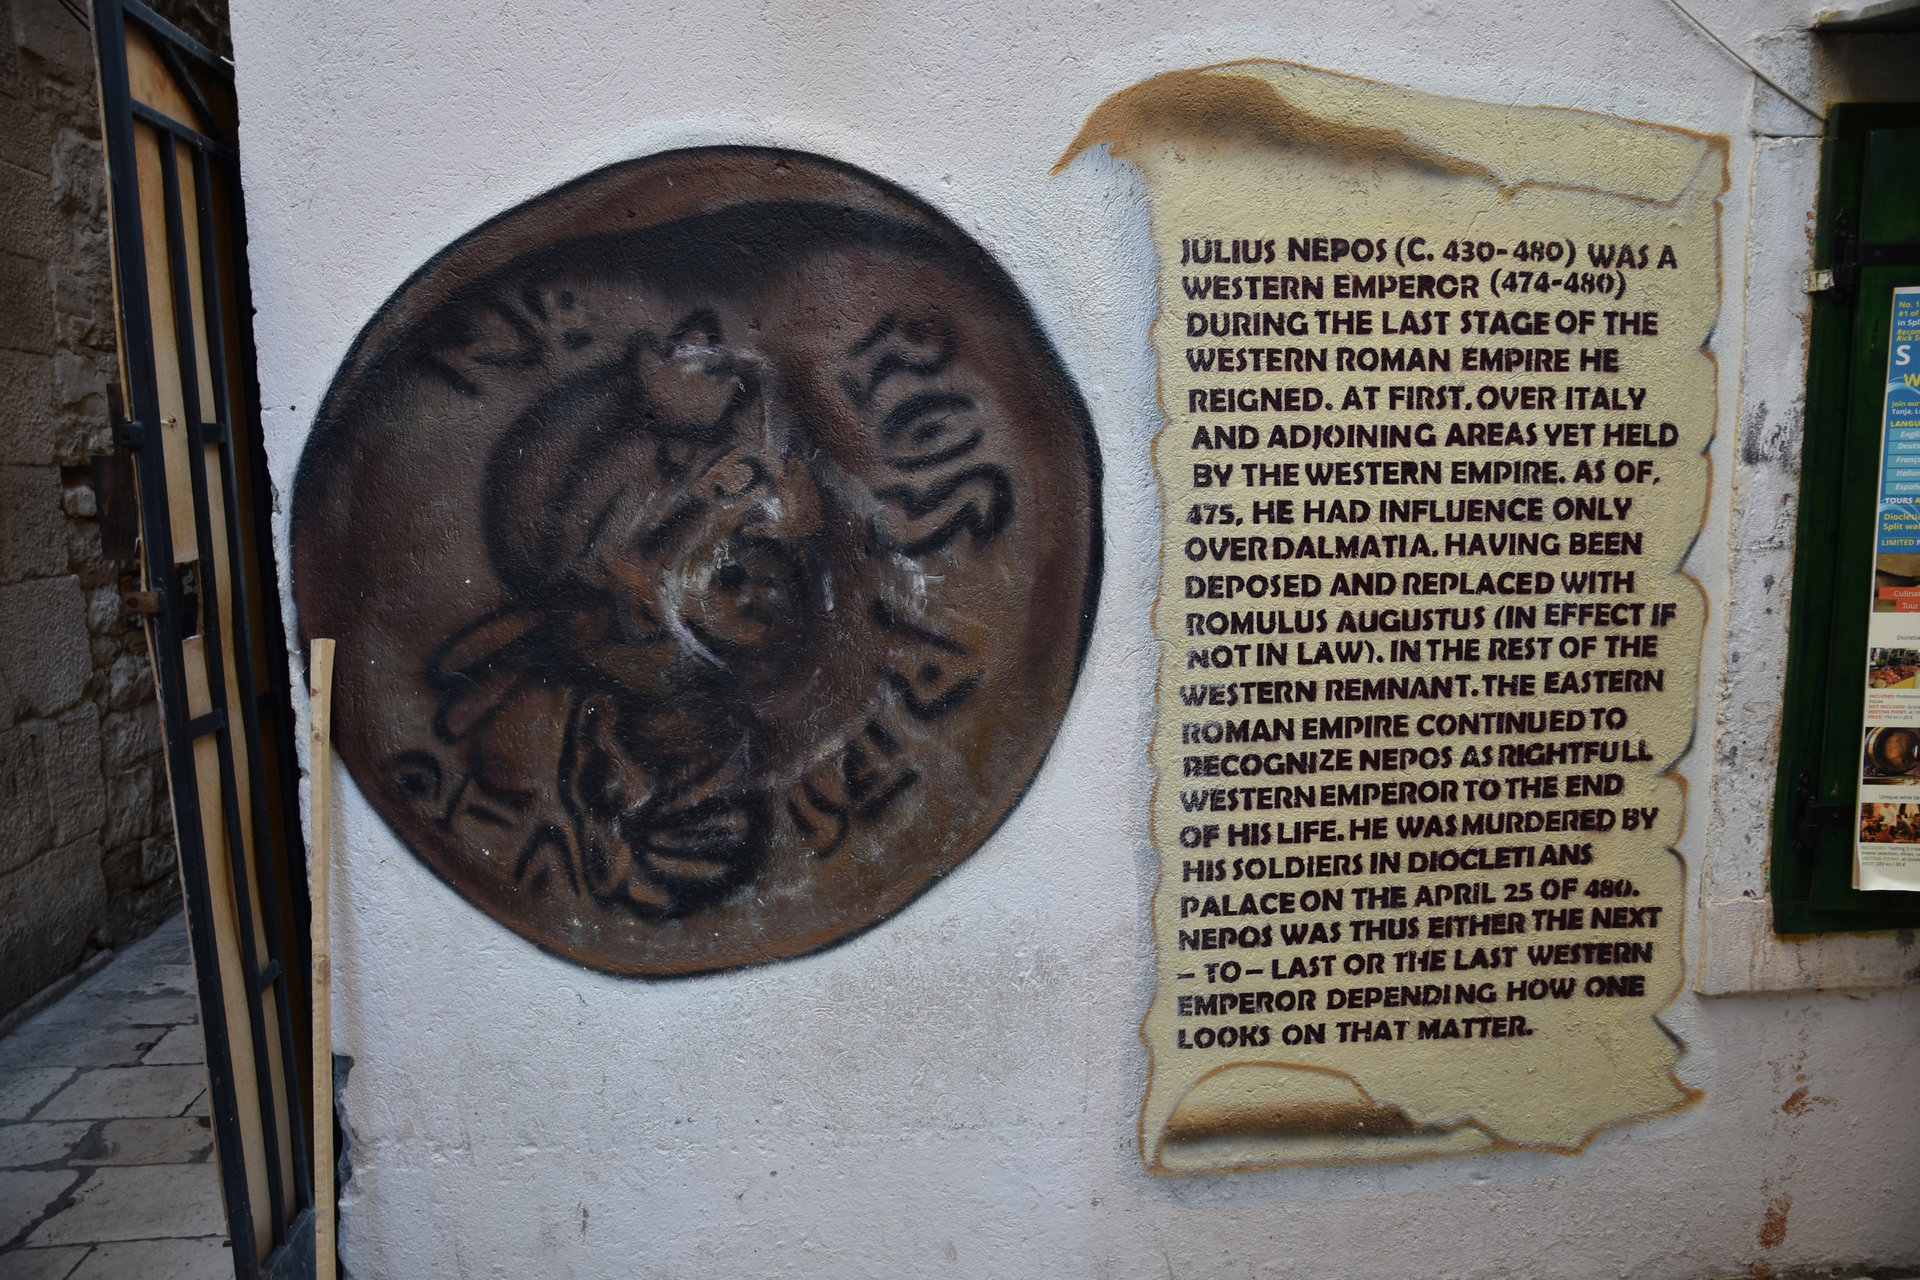 JULIUS NEPOS (C. 430-480) WAS A
WESTERN EMPEROR (474-480)
DURING THE LAST STAGE OF THE
WESTERN ROMAN EMPIRE HE
REIGNED. AT FIRST, OVER ITALY
AND ADJOINING AREAS YET HELD
BY THE WESTERN EMPIRE. AS OF,
475, HE HAD INFLUENCE ONLY
OVER DALMATIA. HAVING BEEN
DEPOSED AND REPLACED WITH
ROMULUS AUGUSTUS (IN EFFECT IF
NOT IN LAW). IN THE REST OF THE
WESTERN REMNANT. THE EASTERN
ROMAN EMPIRE CONTINUED TO
RECOGNIZE NEPOS AS RIGHTFULL
WESTERN EMPEROR TO THE END
OF HIS LIFE. HE WAS MURDERED BY
HIS SOLDIERS IN DIOCLETIANS
PALACE ON THE APRIL 25 OF 480.
NEPOS WAS THUS EITHER THE NEXT
– TO – LAST OR THE LAST WESTERN
EMPEROR DEPENDING HOW ONE
LOOKS ON THAT MATTER.
No. 1
#1 of
in Spl
S
W
Join our
TOURS
Split wa
LIMITED
Culina
Tour